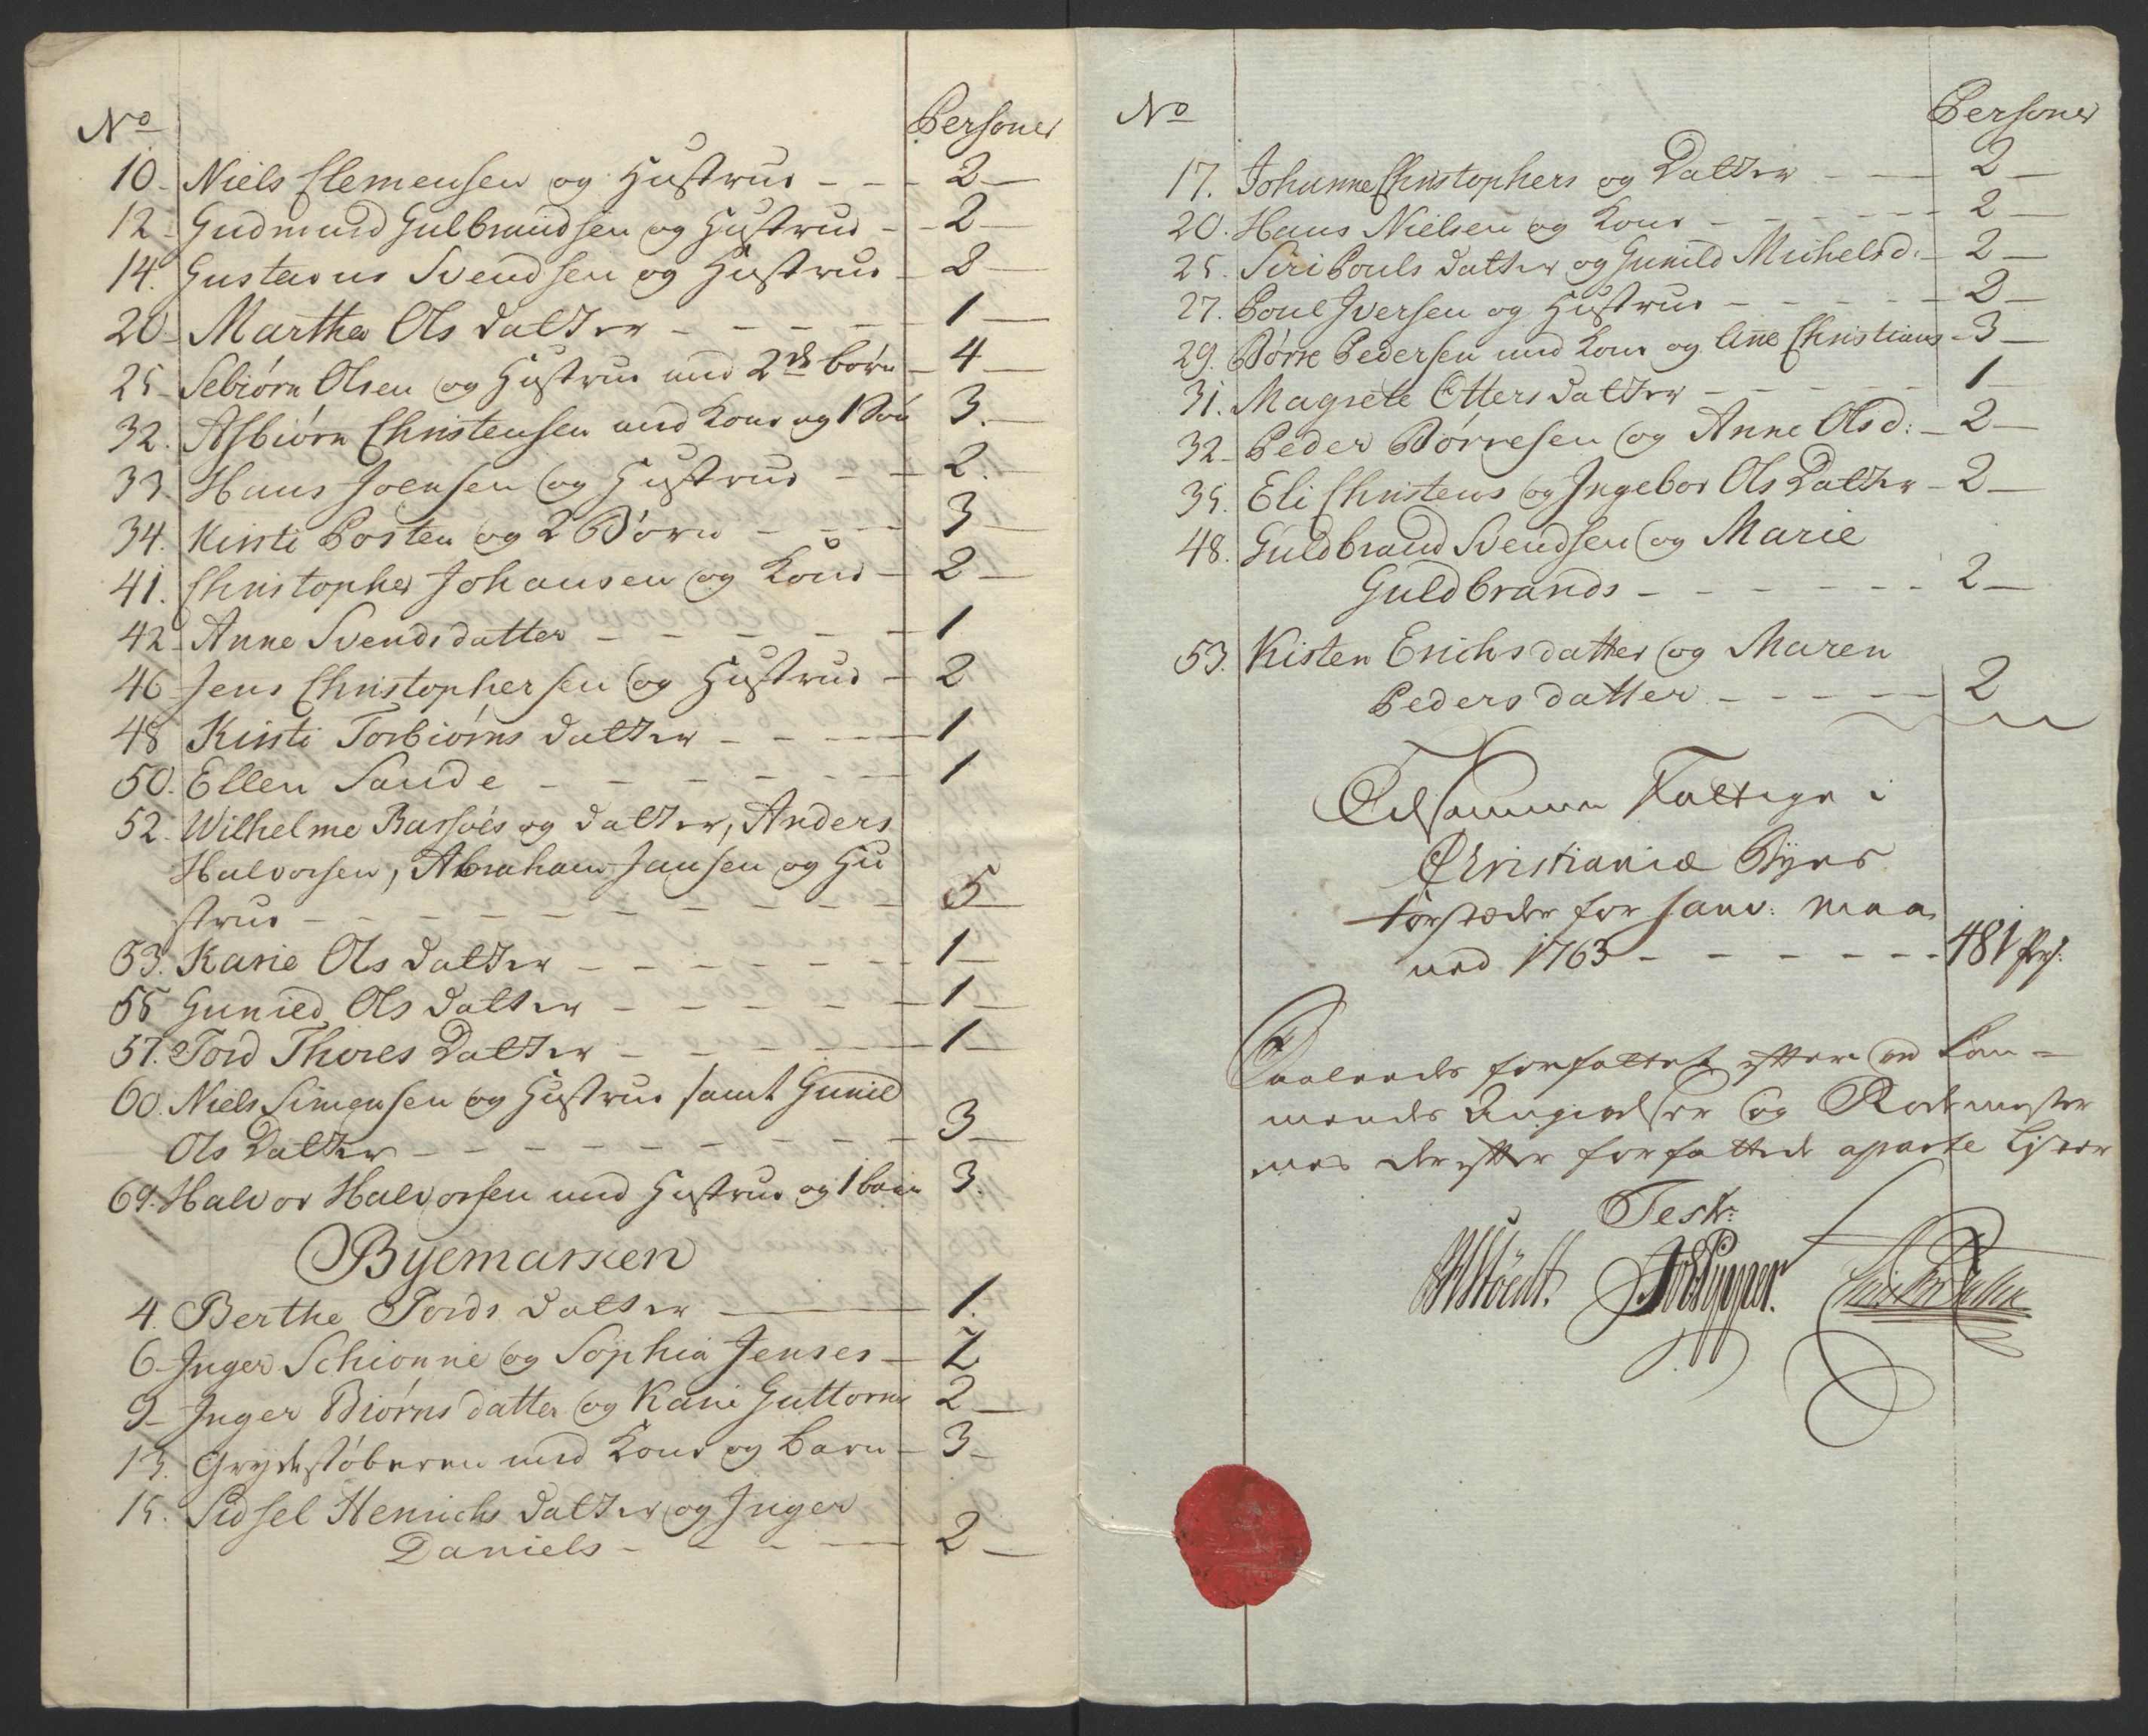 No Personer
10. Niels Clemensen og Hustrue - - - 2 -
12 - Gudmund Gulbrandsen og Hustrue - - 2 -
14. Gustavus Svendsen og Hustrue - 2 -
20 - Marthe Ols datter - - - - - 1 -
25 - Sebiørn Olsen og Hustrue med 2de børn - 4 -
32. Asbiørn Christensen med Kone og 1 Søn 3. -
33. Hans Joensen og Hustrue - - 2. -
34. Kirsti Posten og 2 Børn - - - - 3 -
41. Christopher Johansen og Kone - 2 -
42 - Anne Svends datter - - - - - 1
46 - Jens Christophersen og Hustrue - 2
48 Kirsti Torbiørns datter - - - - 1
50. Ellen Sande - - - - - - - 1
52 - Wilhelme Bassøes og datter, Anders
Halvorsen, Abraham Jansen og Hu
strue - - - - - - - - - - 5 -
53. Karie Ols datter - - - - - - - 1 -
55 Gunild Ols datter - - - - - 1 -
57. Tord Thores Datter - - - - - 1 -
60. Niels Simensen og Hustrue samt Gunild
Ols Datter - - - - - - - - - 3 -
69. Halvor Halvorsen med Hustrue og 1 barn 3.
Byemarken
4. Berthe Tords datter - 1.
6 - Inger Schionne og Sophia Jenses - 2
9 - Inger Biørns datter og Karie Guttorms 2 -
13. Grydestøberen med Kone og Barn - 3 -
15. Sidsel Henrichs datter og Inger
Daniels - - - - - 2 -
No Personer
17. Johanne Christophers og Datter - - 2 -
20. Hans Nielsen og Kone - - - - - - 2 -
25. Siri Pouls datter og Gunild Michelsd: - 2 -
27. Poul Iversen og Hustrue - - - - - 2 -
29. Børre Pedersen med Kone og Anne Christians - 3 -
31. Magrete Otters datter - - - - - 1 -
32 - Peder Børresen og Anne Olsd: - 2 -
35. Eli Christens og Ingebor Ols Datter - 2 -
48. Guldbrand Svendsen og Marie
Guldbrands - - - - - - 2 -
53. Kisten Erichs datter og Maren
Peders datter - - - - - 2
Tilsammen Fattige i
Christianiæ Byes
forstæder for Janv: maa
ned 1763 - - - - - - 481 Prs:
Saaledes forfattet efter ved kom-
mendes Angivelser og Rodemester
nes derefter forfattede aparte Lister
Test: